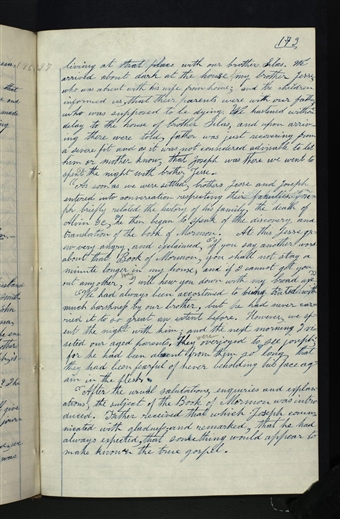 193
living at that place with our brother Silas. We
arrived about dark at the house my brother Jesse,
who was about with his wife from home; and the children
informed us, that their parents were with our father
who was supposed to be dying. We hastened without
delay to the house of brother Silas, and upon arriv-
ing there were told, father was just recovering from
a severe fit and as it was not considered advisable to let
him or mother know, that Joseph was there we went to
spend the night with brother Jesse.
As soon as we were settled, brothers Jesse and Joseph
entered into conversation respecting their families,
briefly related the history of his family, the death of
Alvin &c. He then began to speak of the discovery and
translation of the book of Mormon. At this Jesse gr-
ew very angry, and exclaimed, "If you say another word
about that Book of Mormon, you shall not stay a
minute longer in my house, and if I cannot get you
out any other way, I will hew you down with my broad axe."
We had always been accustomed to being treated with
much harshness by our brother, but he had never carri-
ed it to so great an extent before. However, we sp-
ent the night with him, and the next morning
visited our aged parents. They were overjoyed to see Joseph,
for he had been absent from them so long, that
they had been fearful of never beholding his face ag-
ain in the flesh.
After the usual salutations, enquiries and explan-
ations, the subject of the Book of Mormon was intro-
duced. Father received that which Joseph commu-
nicated with gladness; and remarked, that he had
always expected, that something would appear to
make known the true gospel.